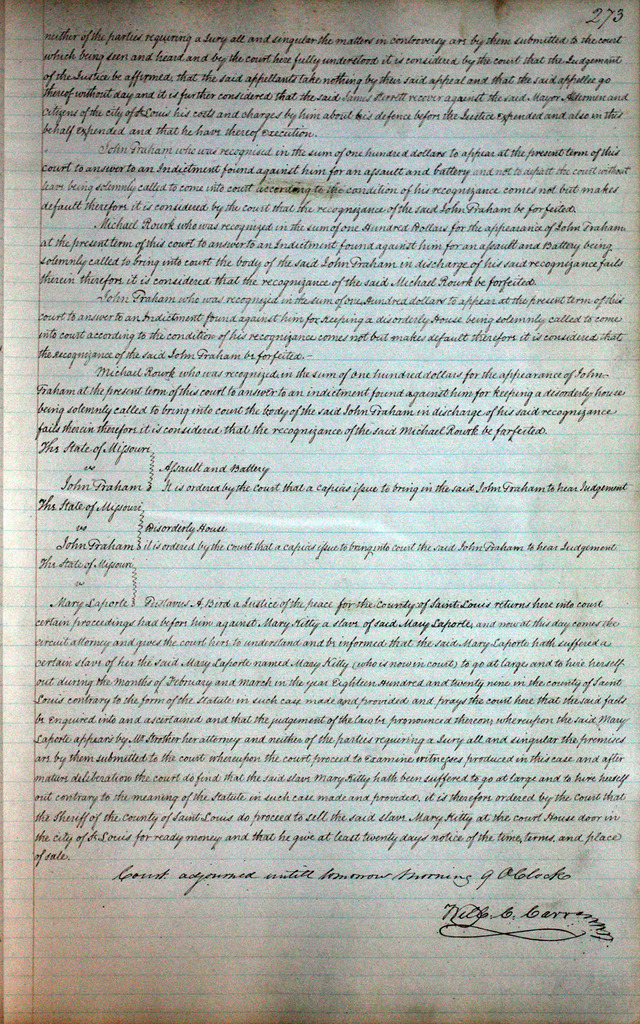 273
neither of the parties requiring a Jury all and singular the matters in controversy are by them submitted to the court
which being seen and heard and by the court here fully understood it is considered by the court that the Judgement
of the Justice be affirmed, that the said appellants take nothing by their said appeal and that the said appellee go
thereof without day and it is further considered that the said James recover against the said Mayor Aldermen and
Citizens of the city of St Louis his costs and charges by him about his defence before the Justice Expended and also in this
behalf expended and that he have thereof Execution.
John Graham who was recognised in the sum of one hundred dollars to appear at the present term of this
court to answer to an Indictment found against him for an assault and battery and not to depart the court without
leave being solemnly called to come into court according to the condition of his recognizance comes not but makes
default therefore it is considered by the court that the recognizance of the said John Graham be forfeited.
Michael Rourk who was recognized in the sum of one Hundred Dollars for the appearance of John Graham
at the present term of this court to answer to an Indictment found against him for an assault and Battery being
solemnly called to bring into court the body of the said John Graham in discharge of his said recognizance fails
therein therefore it is considered that the recognizance of the said Michael Rourk be forfeited.
John Graham who was recognized in the sum of one Hundred dollars to appear at the present term of this
court to answer to an Indictment found against him for keeping a disorderly House being solemnly called to come
into court according to the condition of his recognizance comes not but makes default therefore it is considered that
the recognizance of the said John Graham be forfeited.-
Michael Rourk who was recognized in the sum of one hundred dollars for the appearance of John
Graham at the present term of this court to answer to an indictment found against him for keeping a disorderly house
being solemnly called to bring into court the body of the said John Graham in discharge of his said recognizance
fails therein therefore it is considered that the recognizance of the said Michael Rourk be forfeited.
The State of Missouri
vs
Assault and Battery
John Graham It is ordered by the court that a capias issue to bring in the said John Graham to hear Judgement
The State of Missouri
vs
Disorderly House
John Graham it is ordered by the Court that a capias issue to bring into court the said John Graham to hear Judgement
The State of Missouri
vs
Mary Laporte Gustavus A. Bird a Justice of the peace for the County of Saint Louis returns here into court
certain proceedings had before him against Mary Kitty a slave of said Mary Laporte, and now at this day comes the
circuit attorney and gives the court here to understand and be informed that the said Mary Laporte hath suffered a
certain slave of her the said Mary Laporte named Mary Kitty (who is now in court) to go at large and to hire herself
out during the months of February and March in the year Eighteen Hundred and twenty nine in the county of Saint
Louis contrary to the form of the Statute in such case made and provided and prays the court here that the said facts
be Enquired into and ascertained and that the judgement of the law be pronounced thereon, whereupon the said Mary
Laporte appears by Mr Strother her attorney and neither of the parties requiring a Jury all and singular the premises
are by them submitted to the court whereupon the court proceed to Examine witnesses produced in this case and after
mature deliberation the court do find that the said slave Mary Kitty hath been suffered to go at large and to hire herself
out contrary to the meaning of the Statute in such case made and provided, it is therefore ordered by the Court that
the Sheriff of the county of Saint Louis do proceed to sell the said slave Mary Kitty at the court House door in
the city of St Louis for ready money and that he give at least twenty days notice of the time, terms, and place
of sale.
Court adjourned untill tomorrow morning 9 OClock
Will. C. Carr